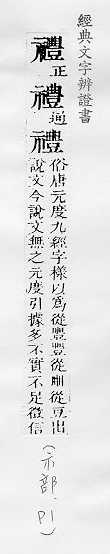 經典文字辨證書
禮正禮通禮俗唐元度九經字樣以為從豊豊從冊從豆出
說文今說文無之元度引據多不實不足徵信
(示部.P1)